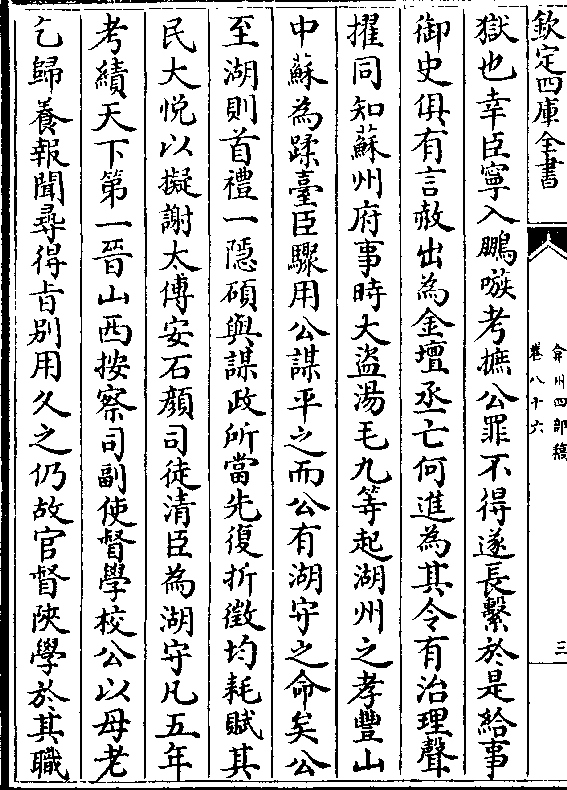 欽定四庫全書
弇州四部稿
卷八十六
三
獄也幸臣寧入鵬嗾考摭公罪不得遂長繫於是給事
御史俱有言赦出為金壇丞亡何進為其令有治理聲
擢同知蘇州府事時大盜湯毛九等起湖州之孝豐山
中蘇為蹂臺臣驟用公謀平之而公有湖守之命矣公
至湖則首禮一隱碩與謀政所當先復折徵均耗賦其
民大悅以擬謝太傅安石顏司徒清臣為湖守凡五年
考績天下第一晉山西按察司副使督學校公以母老
乞歸養報聞尋得旨別用久之仍故官督陜學於其職